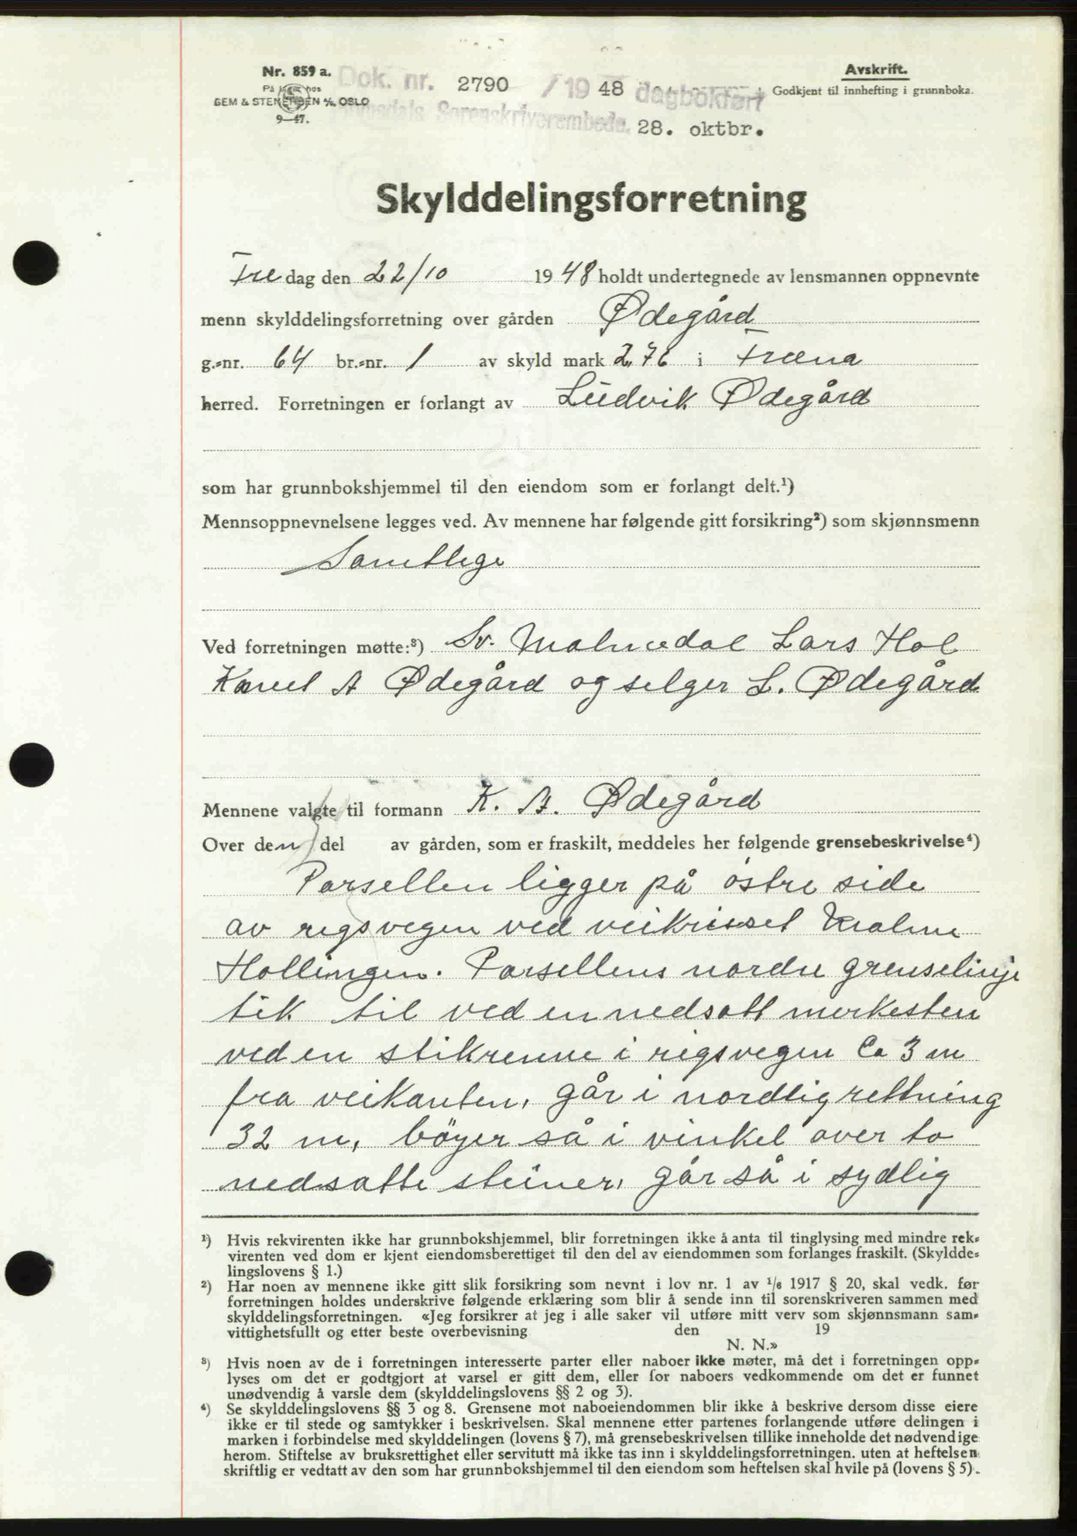 Nr. 859 a.
På lager hos
SEM & STENERSEN A/S, OSLO
9—47.
Dok. nr. 2790 /19 48 dagbokført
Sorenskriverembede. 28. oktbr.
Avskrift.
Godkjent til innhefting i grunnboka.
Skylddelingsforretning
Fre dag den 22/10 19 48 holdt undertegnede av lensmannen oppnevnte
menn skylddelingsforretning over gården Ødegård
g.-nr. 64 br.-nr. 1 av skyld mark 2,76 i Fræna
herred. Forretningen er forlangt av Ludvik Ødegård
som har grunnbokshjemmel til den eiendom som er forlangt delt.¹)
Mennsoppnevnelsene legges ved. Av mennene har følgende gitt forsikring²) som skjønnsmenn
Samtlige
Ved forretningen møtte:³) Sv. Malmedal Lars Hol
A Ødegård og selger L. Ødegård
Mennene valgte til formann K. A. Ødegård
Over den del av gården, som er fraskilt, meddeles her følgende grensebeskrivelse⁴)
Parsellen ligger på östre side
av rigsvegen ved veikrisset Malme
Hollingen. Parsellens nordre grenselinje
tik til ved en nedsatt merkesten
ved en stikrenne i rigsvegen Ca 3 m
fra veikanten, går i nordlig rettning
32 m, böyer så i vinkel over to
nedsatte steiner, går så i sydlig
¹) Hvis rekvirenten ikke har grunnbokshjemmel, blir forretningen ikke å anta til tinglysing med mindre rek-
virenten ved dom er kjent eiendomsberettiget til den del av eiendommen som forlanges fraskilt. (Skyldde-
lingslovens § 1.)
²) Har noen av mennene ikke gitt slik forsikring som nevnt i lov nr. 1 av ¹/₆ 1917 § 20, skal vedk. før
forretningen holdes underskrive følgende erklæring som blir å sende inn til sorenskriveren sammen med
skylddelingsforretningen. «Jeg forsikrer at jeg i alle saker vil utføre mitt verv som skjønnsmann sam-
vittighetsfullt og etter beste overbevisning den 19
N. N.»
³) Hvis noen av de i forretningen interesserte parter eller naboer ikke møter, må det i forretningen opp-
lyses om det er godtgjort at varsel er gitt dem, eller for naboers vedkommende om det er funnet
unødvendig å varsle dem (skylddelingslovens §§ 2 og 3).
⁴) Se skylddelingslovens §§ 3 og 8. Grensene mot naboeiendommen blir ikke å beskrive dersom disse eiere
ikke er til stede og samtykker i beskrivelsen. Skal mennene etter partenes forlangende utføre delingen i
marken i forbindelse med skylddelingen (lovens § 7), må grensebeskrivelsen tillike inneholde det nødvendige
herom. Stiftelse av bruksrettighet eller servitutt må ikke tas inn i skylddelingsforretningen, uten at heftelsen
skriftlig er vedtatt av den som har grunnbokshjemmel til den eiendom som heftelsen skal hvile på (lovens § 5).